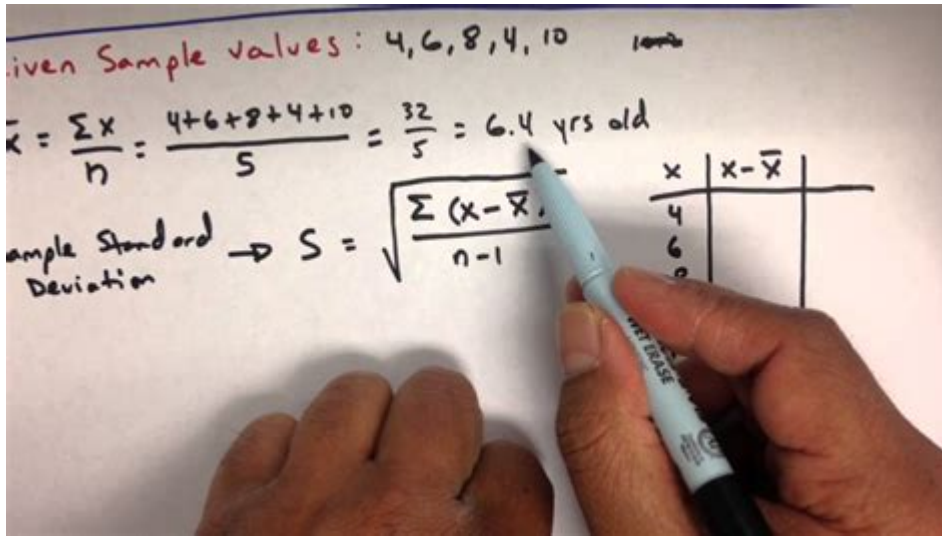 iven Sample values: 4, 6, 8, 4, 10
x̄ = Σx/n = 4+6+8+4+10/5 = 32/5 = 6.4 yrs old
x | x-x̄ |
4
6
8
ample Standard Deviation → S = √Σ(x-x̄)/n-1
WET ERASE